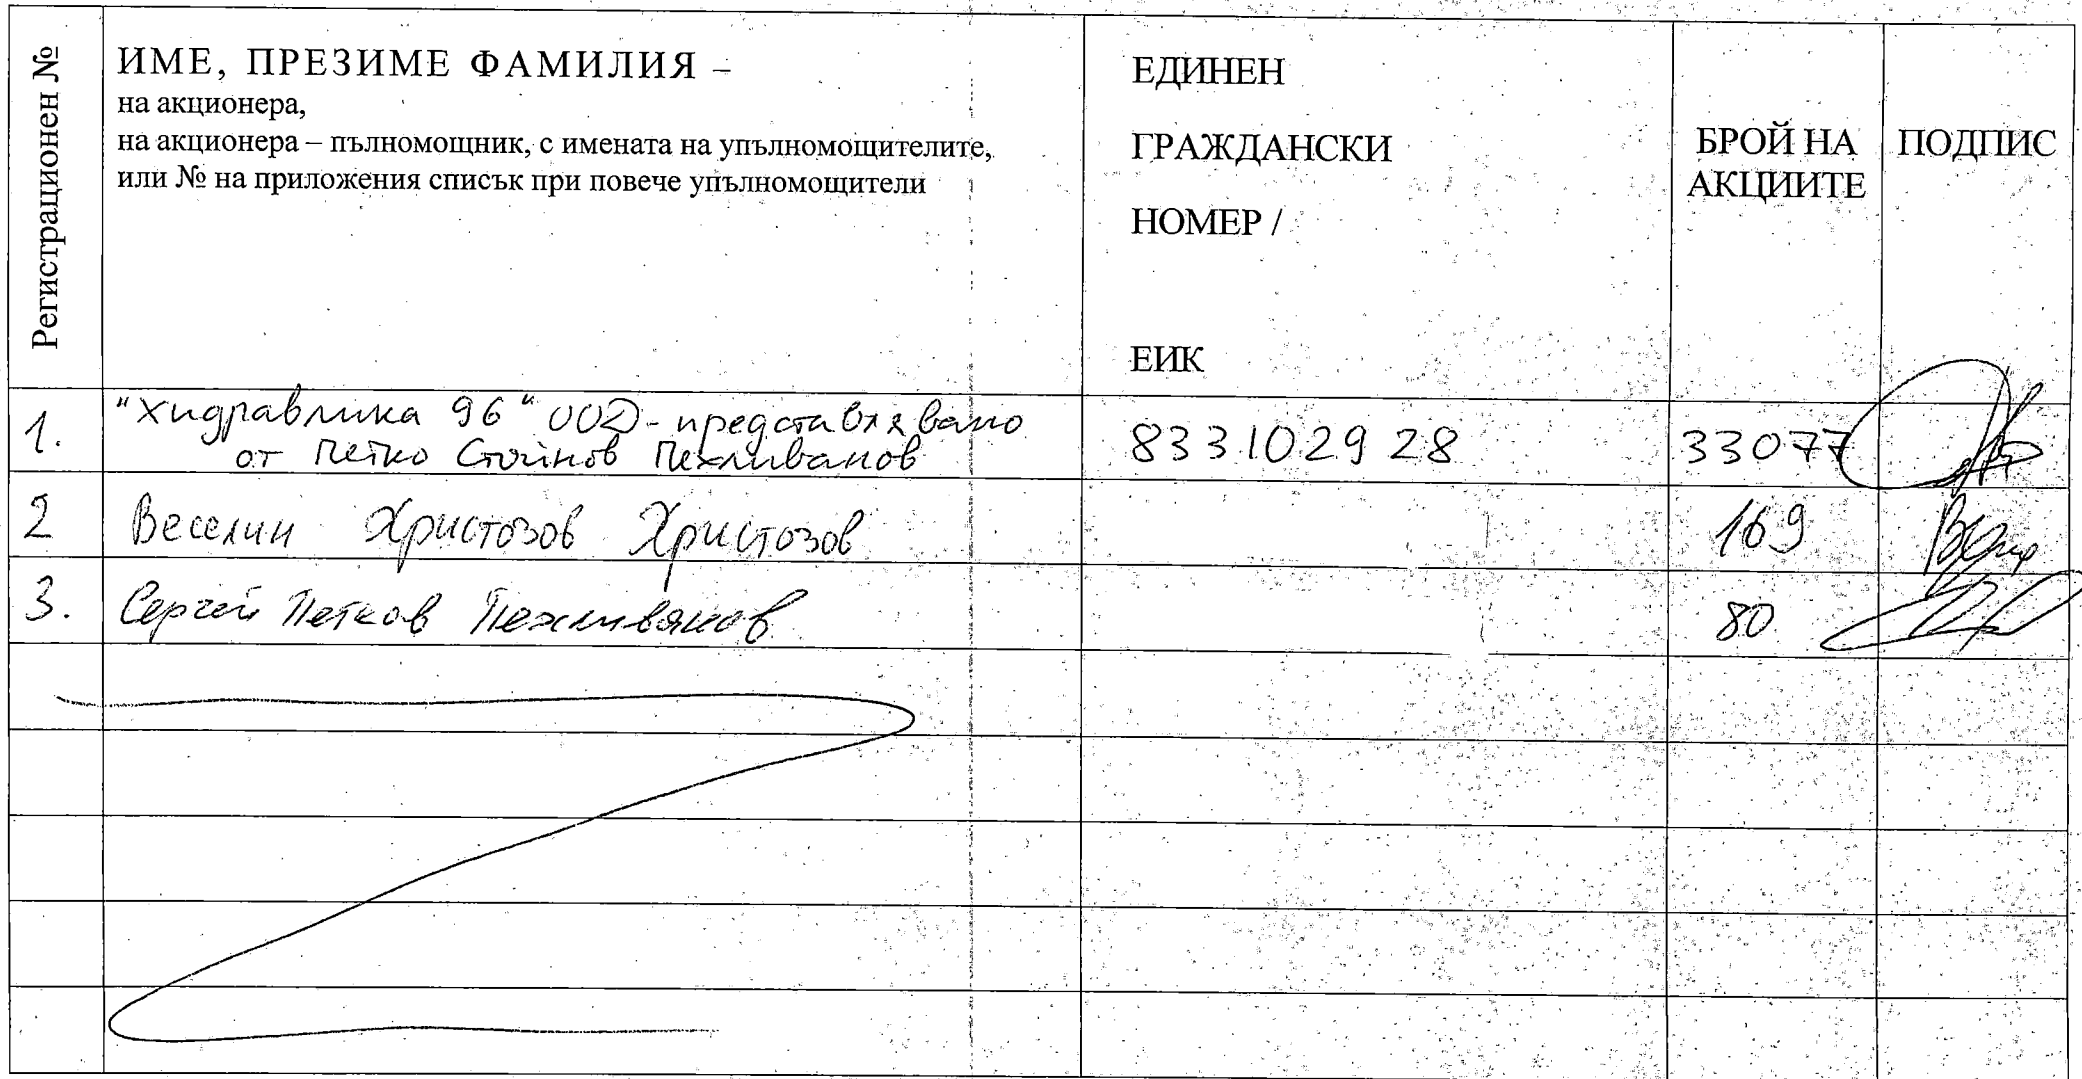 Регистрационен №
ИМЕ, ПРЕЗИМЕ ФАМИЛИЯ –
на акционера,
на акционера – пълномощник, с имената на упълномощителите,
или № на приложения списък при повече упълномощители
ЕДИНЕН
ГРАЖДАНСКИ
НОМЕР /
ЕИК
БРОЙ НА
АКЦИИТЕ
ПОДПИС
1.
"Хидравлика 96" ООД - представлявано
от Петко Стойнов Пехливанов
833102928
33077
2
Веселин Христозов Христозов
169
3.
Сергей Петков Пехливанов
80